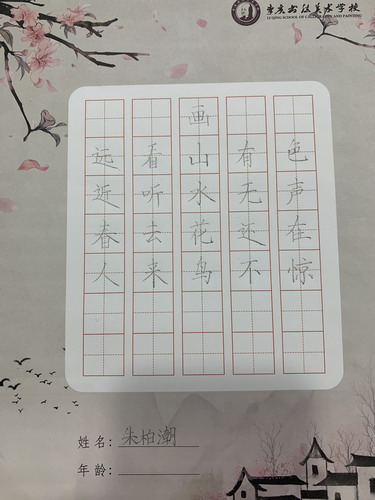 书法美术学校
QING SCHOOL OF CALLIGRAPHY AND PAINTING
画
远看山有色
近听水无声
春去花还在
人来鸟不惊
姓名：朱柏潮
年龄：